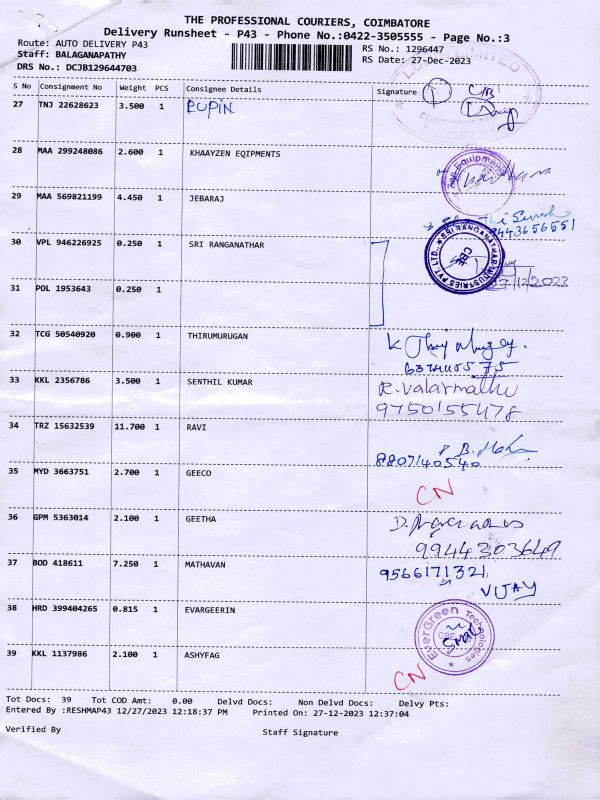 THE PROFESSIONAL COURIERS, COIMBATORE
Delivery Runsheet - P43 - Phone No.:0422-3505555 - Page No.:3
Route: AUTO DELIVERY P43
Staff: BALAGANAPATHY
DRS No.: DCJB129644703
RS No.: 1296447
RS Date: 27-Dec-2023
S No Consignment No Weight PCS Consignee Details Signature
27 TNJ 22628623 3.500 1 LUPIN
28 MAA 299248086 2.600 1 KHAAYZEN EQIPMENTS
29 MAA 569821199 4.450 1 JEBARAJ
9443656551
30 VPL 946226925 0.250 1 SRI RANGANATHAR
SRI RANGANATHAR INDUSTRIES PVT LTD. CBE
27/12/2023
31 POL 1953643 0.250 1
32 TCG 50540920 0.900 1 THIRUMURUGAN
33 KKL 2356786 3.500 1 SENTHIL KUMAR R. Valarmathi
9750155478
34 TRZ 15632539 11.700 1 RAVI
8807140540
35 MYD 3663751 2.700 1 GEECO CN
36 GPM 5363014 2.100 1 GEETHA
9944303649
37 BOD 418611 7.250 1 MATHAVAN 9566171321
VIJAY
38 HRD 399404265 0.815 1 EVARGEERIN
EverGreen Technologies
39 KKL 1137986 2.100 1 ASHYFAG CN
Tot Docs: 39 Tot COD Amt: 0.00 Delvd Docs: Non Delvd Docs: Delvy Pts:
Entered By :RESHMAP43 12/27/2023 12:18:37 PM Printed On: 27-12-2023 12:37:04
Verified By Staff Signature